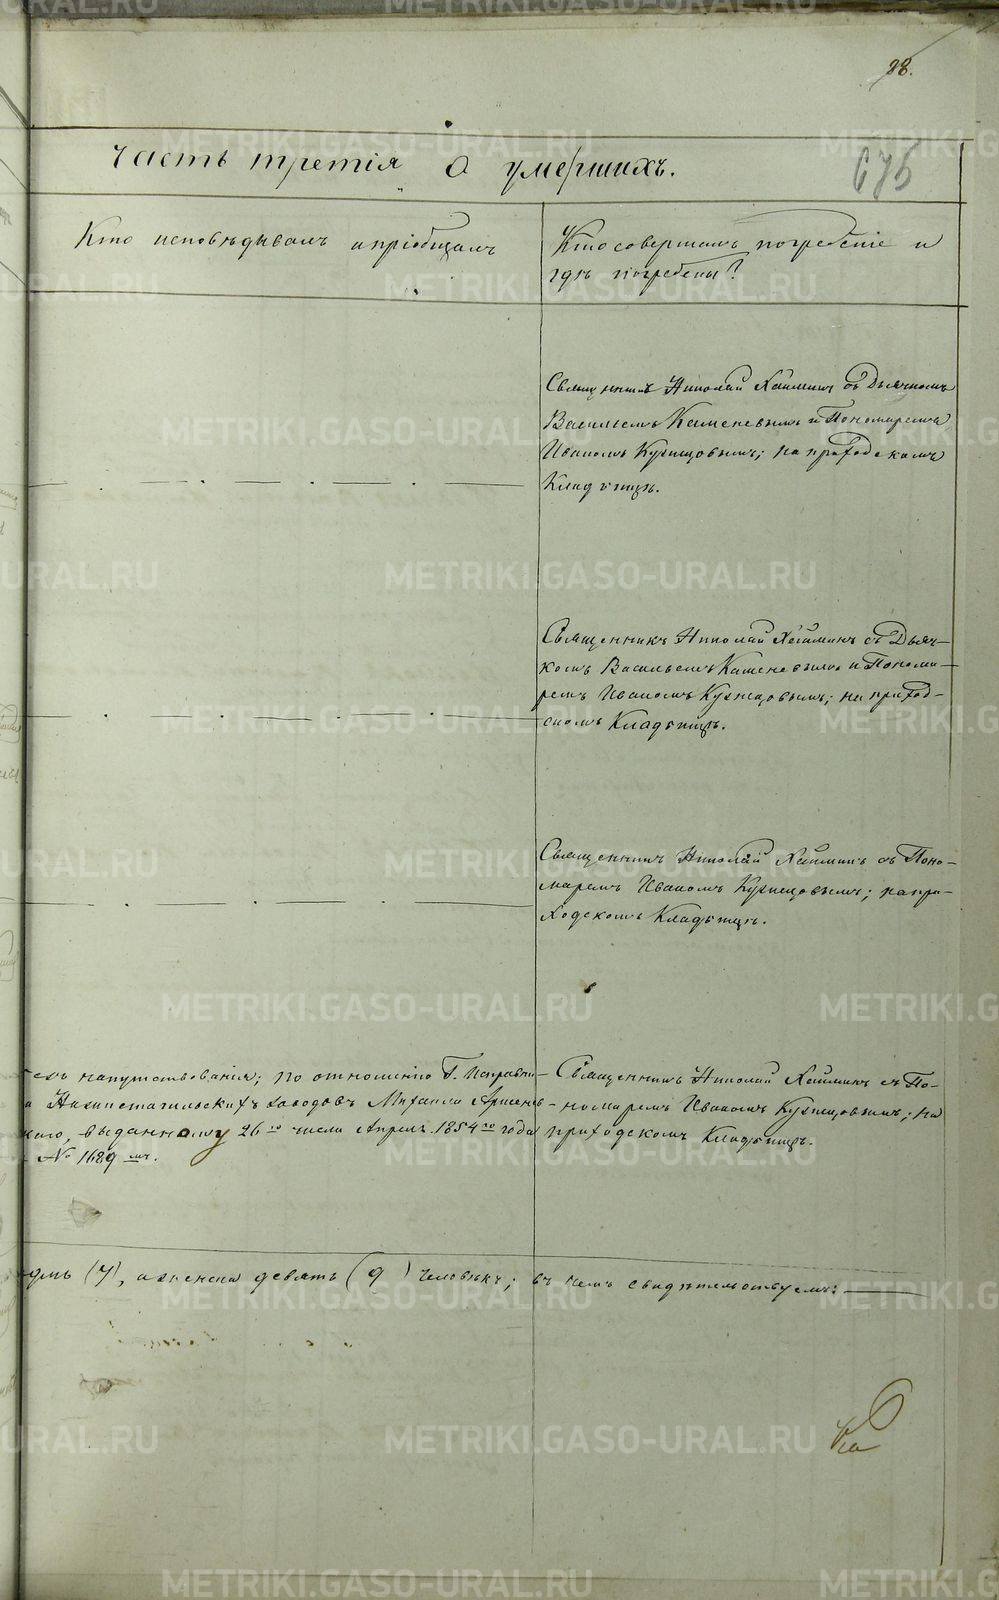 88.
Часть третія о умершихъ.
675
Кто исповѣдывалъ и пріобщалъ
Кто совершалъ погребеніе и
гдѣ погребены?
Священникъ Николай Хлынинъ съ Дьячкомъ
Васильемъ Каменевымъ и Пономаремъ
Иваномъ Кузнецовымъ; на приходскомъ
Кладбищѣ.
Священникъ Николай съ Дьяч-
комъ Васильемъ Каменевымъ и Понома-
ремъ Иваномъ Кузнецовымъ; на приход-
скомъ Кладбищѣ.
Священникъ Николай съ Поно-
маремъ Иваномъ Кузнецовымъ; на при-
ходскомъ Кладбищѣ.
напутствованія; по отношенію Г. Исправни-
Нижнетагильскихъ заводовъ Михаила
выданному 26го числа Апрѣля 1854го года
№ 1689мъ.
Священникъ Николай съ По-
номаремъ Иваномъ Кузнецовымъ; на
приходскомъ Кладбищѣ.
(7), а женска девять (9) человѣкъ; въ чемъ свидѣтельствуемъ:
METRIKI.GASO-URAL.RU